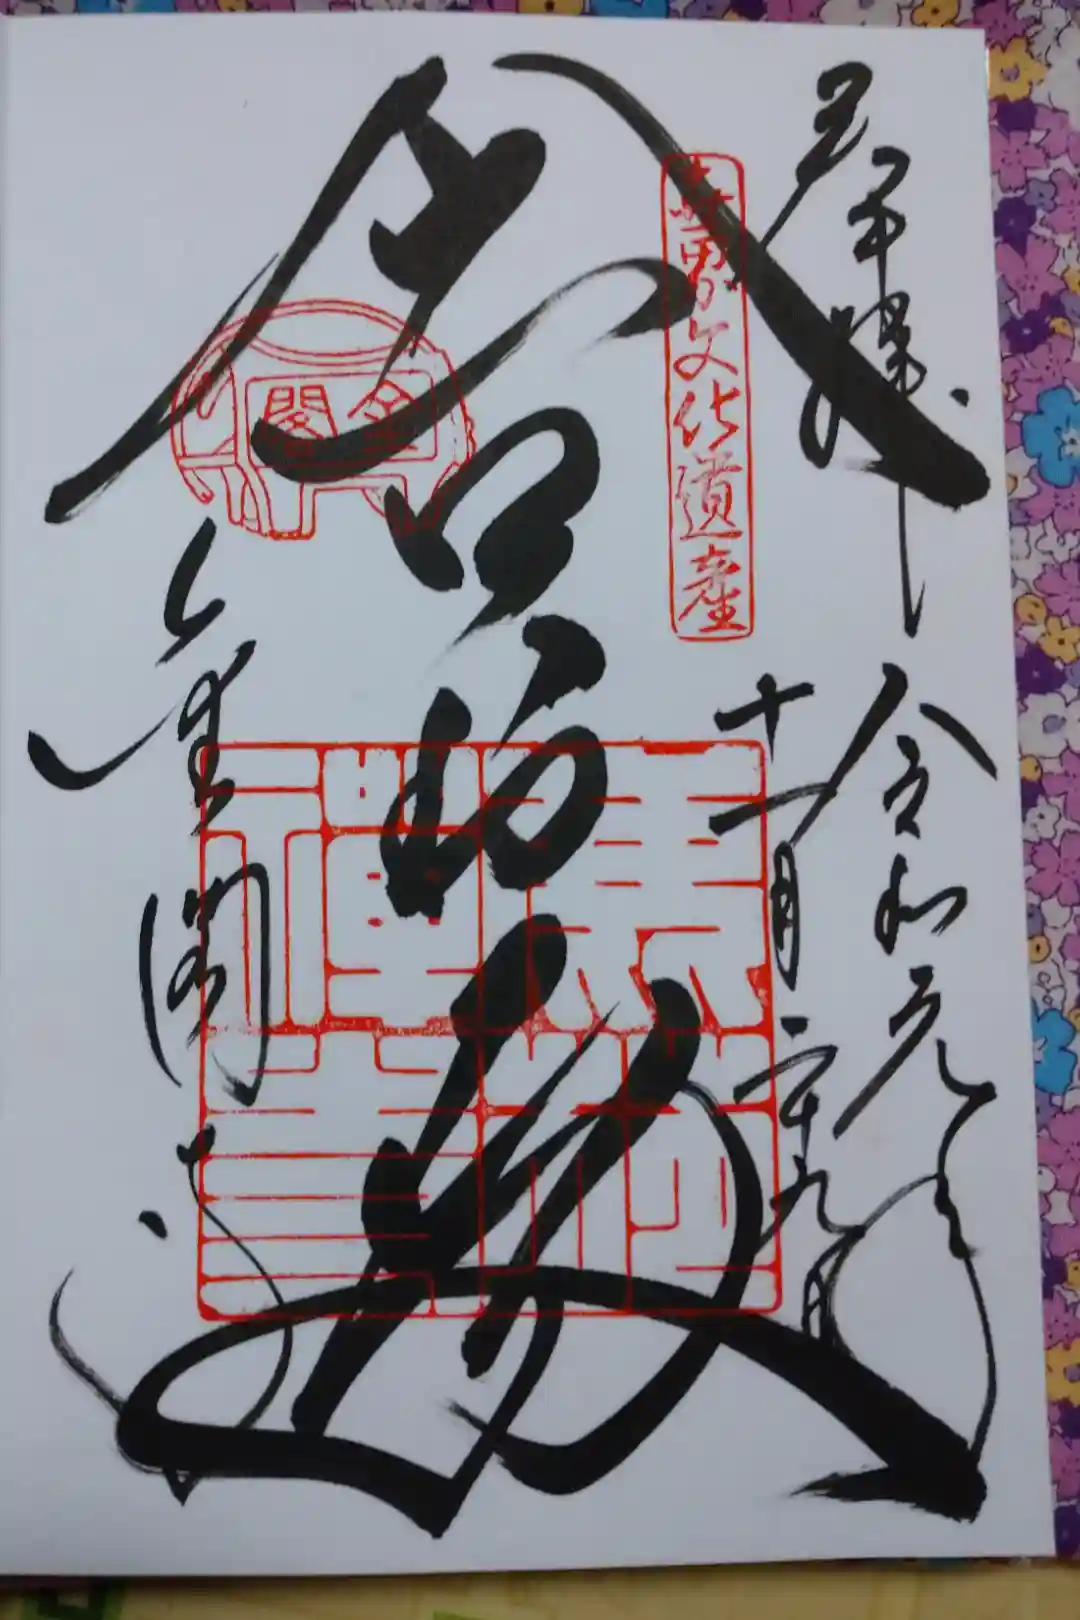 奉拝
令和元年
十一月二十九日
世界文化遺産
舎利殿
金閣
金閣寺